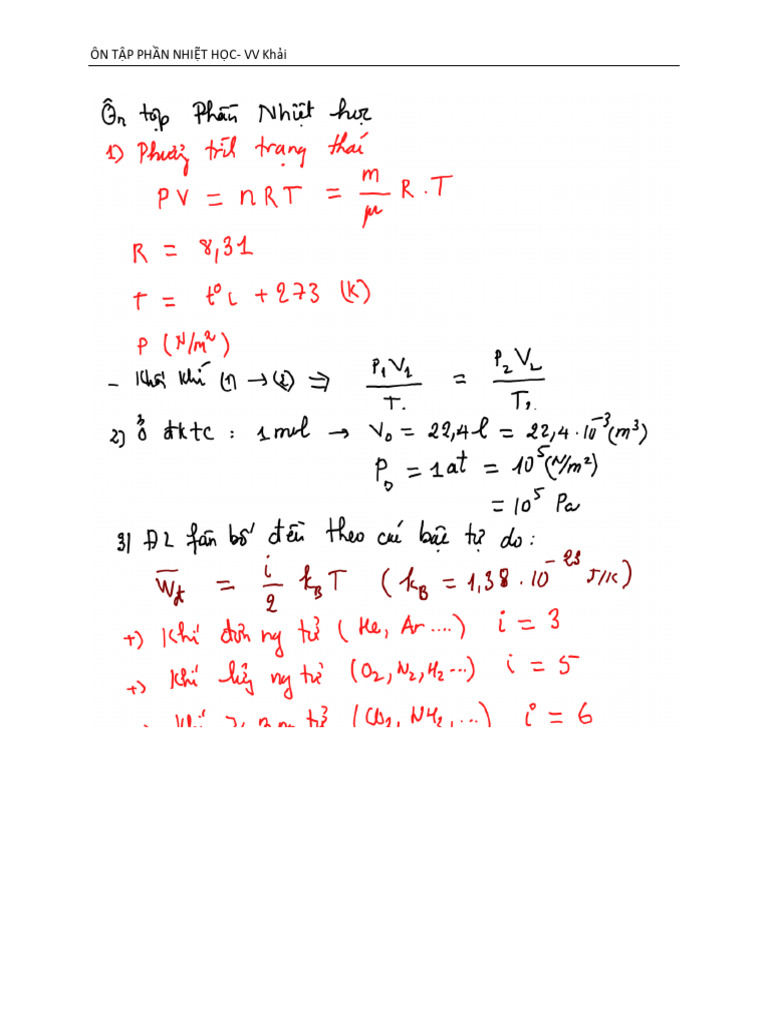 ÔN TẬP PHẦN NHIỆT HỌC- VV Khải
Ôn tập Phần Nhiệt học
1) Phương trìh trạng thái
PV = nRT = m/μ R.T
R = 8,31
T = t°C + 273 (K)
P (N/m²)
- Khối khí (1) → (2) ⇒ P₁V₁/T₁ = P₂V₂/T₂
2) Ở đktc : 1 mol → V₀ = 22,4 l = 22,4.10⁻³ (m³)
P₀ = 1at = 10⁵ (N/m²)
= 10⁵ Pa
3) ĐL fân bố đều theo các bậc tự do :
W̅đ = i/2 k_B T (k_B = 1,38.10⁻²³ J/K)
+) Khí đơn ng tử (He, Ar ....) i = 3
+) Khí lưỡng ng tử (O₂, N₂, H₂ ...) i = 5
tử (CO₂, NH₂, ...) i = 6